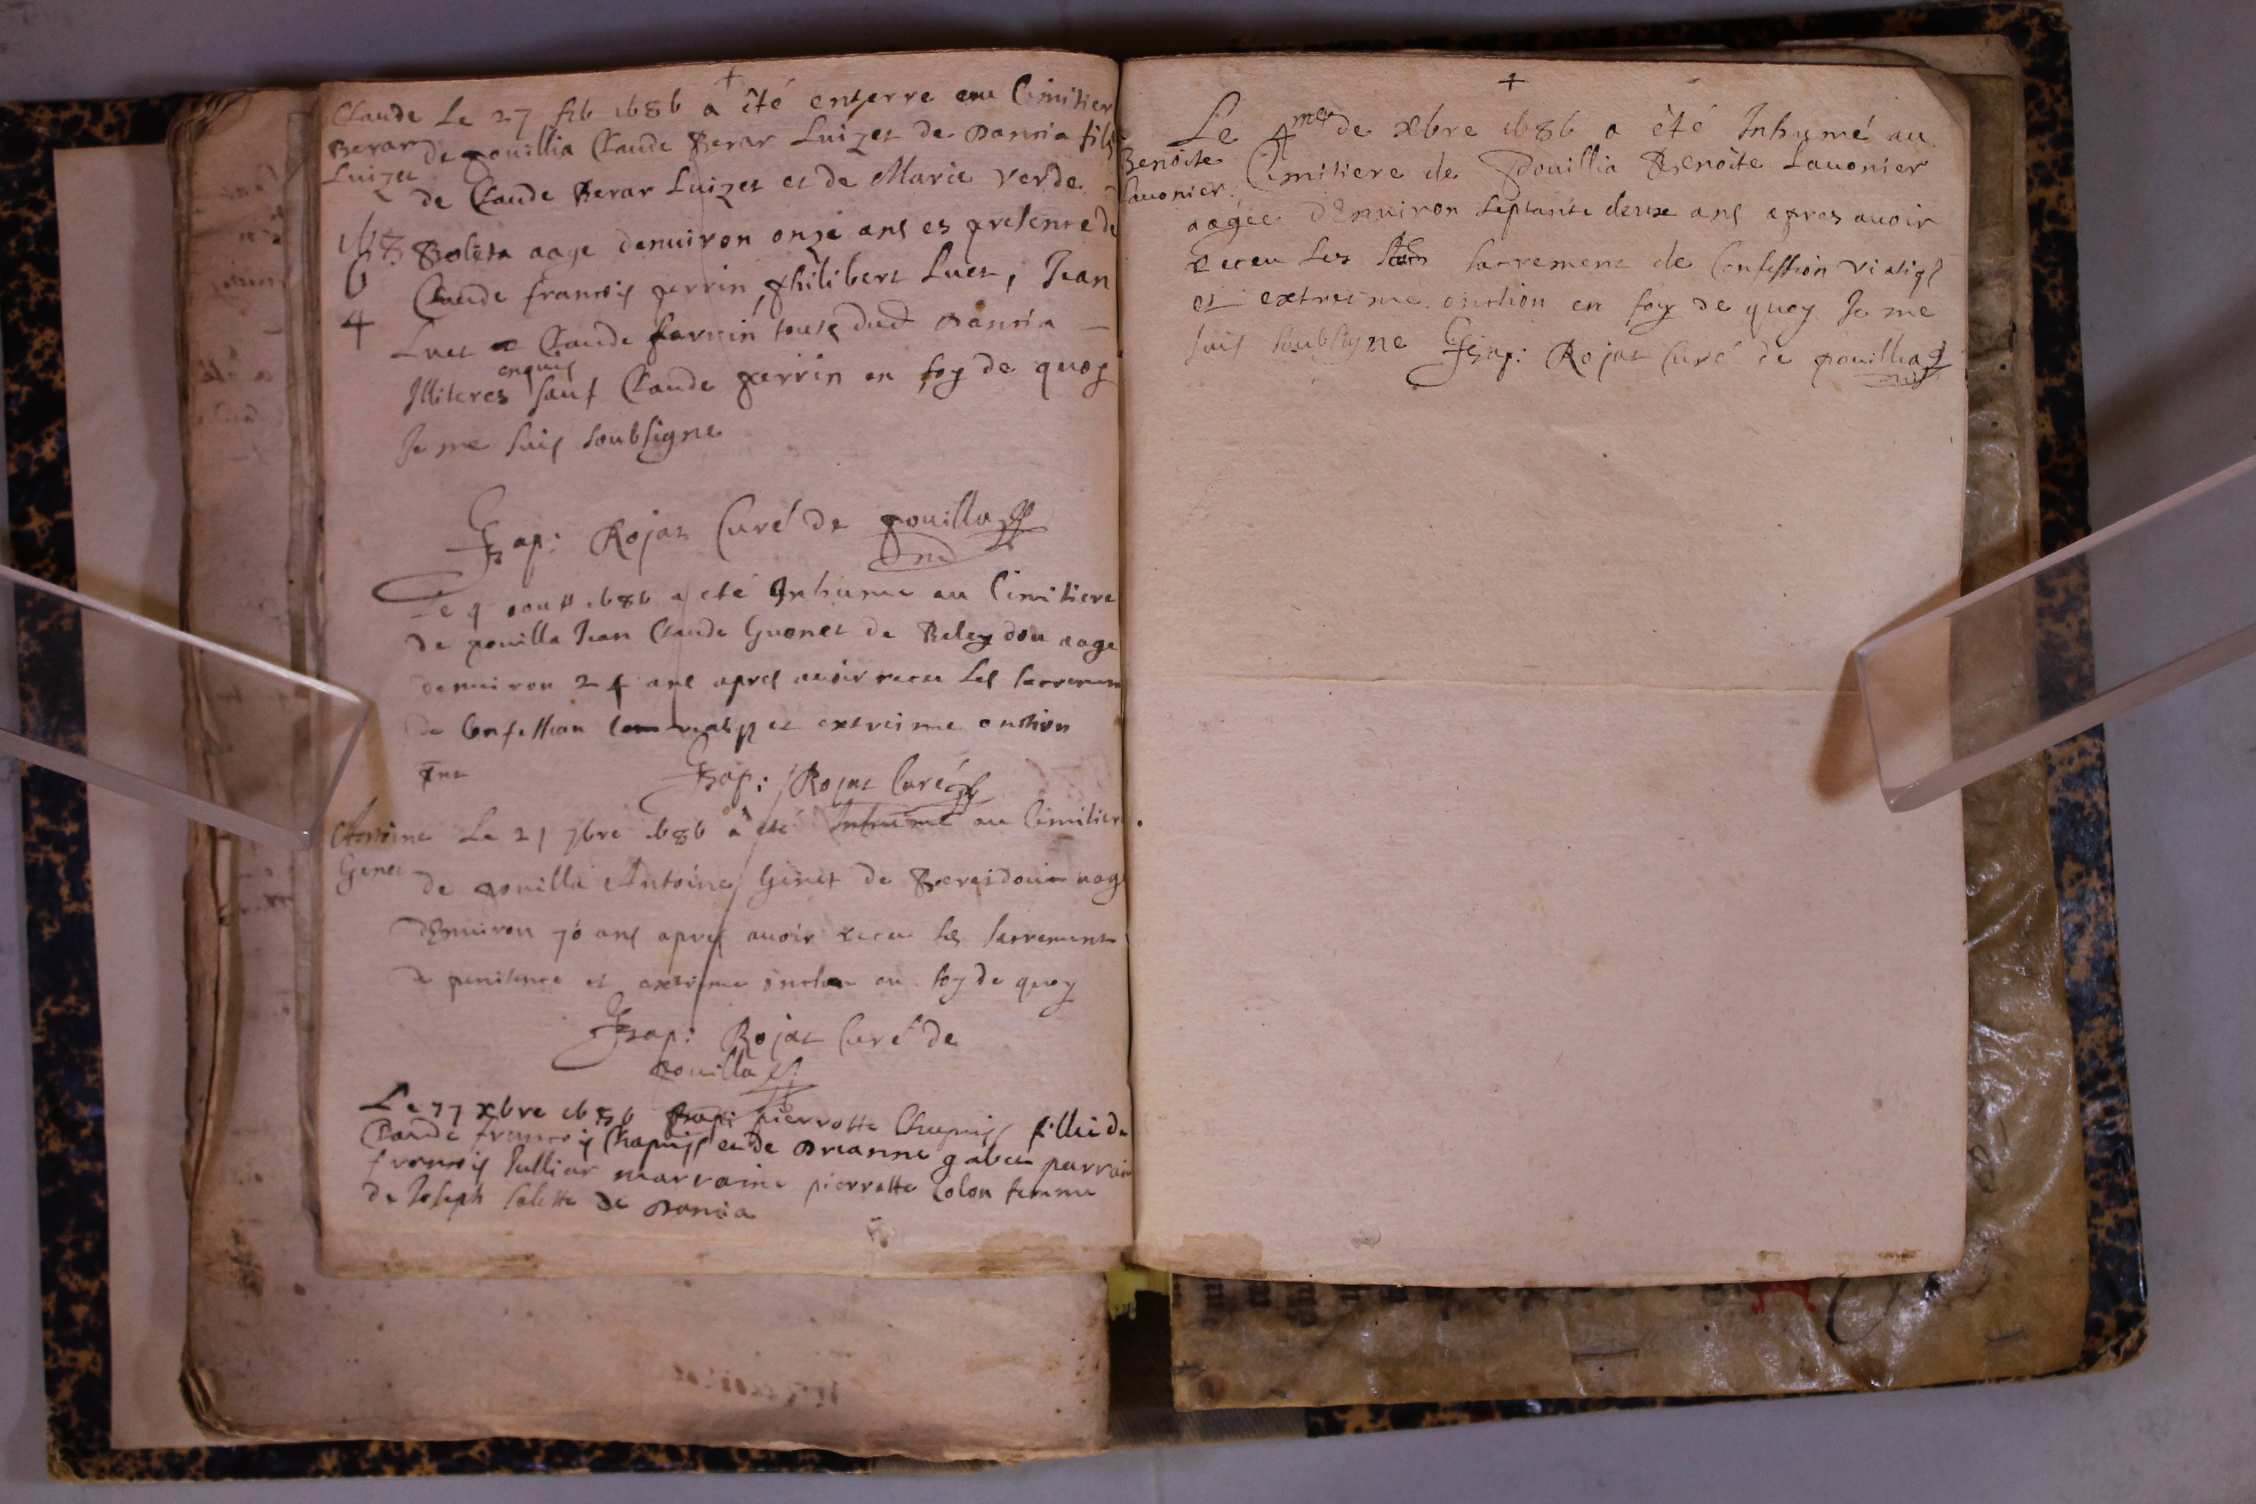 +
Claude Le 27 feb 1686 a été enterre au Cimitier
Berar de pouillia Claude Berar Luizet de Dansia fils
Luizet de Claude Berar Luizet et de Marie Verde
168 aage denuiron onze ans es presence de
6 Claude françois perrin, philibert Luet, Jean
4 Luet Claude perrin touts dud Dansia
enquis
Illiteres sauf Claude perrin en foy de quoy
Je me suis soubsigne
Gasp: Rojat Curé de pouilla
Le 9 aoust 1686 a eté Inhume au Cimitiere
de pouilla Jean Claude Guenet de aage
denuiron 24 ans apres auoir receu Les sacremen
de Confession et extreime onction
Gasp: Rojat Curé
Antoine Le 21 7bre 1686 a eté Inhumé au Cimitiere
Genet de pouilla Antoine Genet de aagé
d'Enuiron 70 ans apres auoir receu les sacrements
de penitence et extreme onction en foy de quoy
Gasp: Rojat Curé de
pouilla
Le xbre 1686 pierrotte Chapuis fillie de
Claude françois Chapuis et de parrain
françois Julliar marraine pierrotte Colon femme
de Joseph de Dansia
+
Le 4me de xbre 1686 a été Inhumé au
Benoite Cimitiere de Pouillia Benoite Lauonier
Lauonier aagée d'Enuiron septante deux ans apres auoir
receu Les sacrement de Confession viatiq
et extreime onction en foy de quoy Je me
suis soubsigne Gasp: Rojat Curé de pouillia